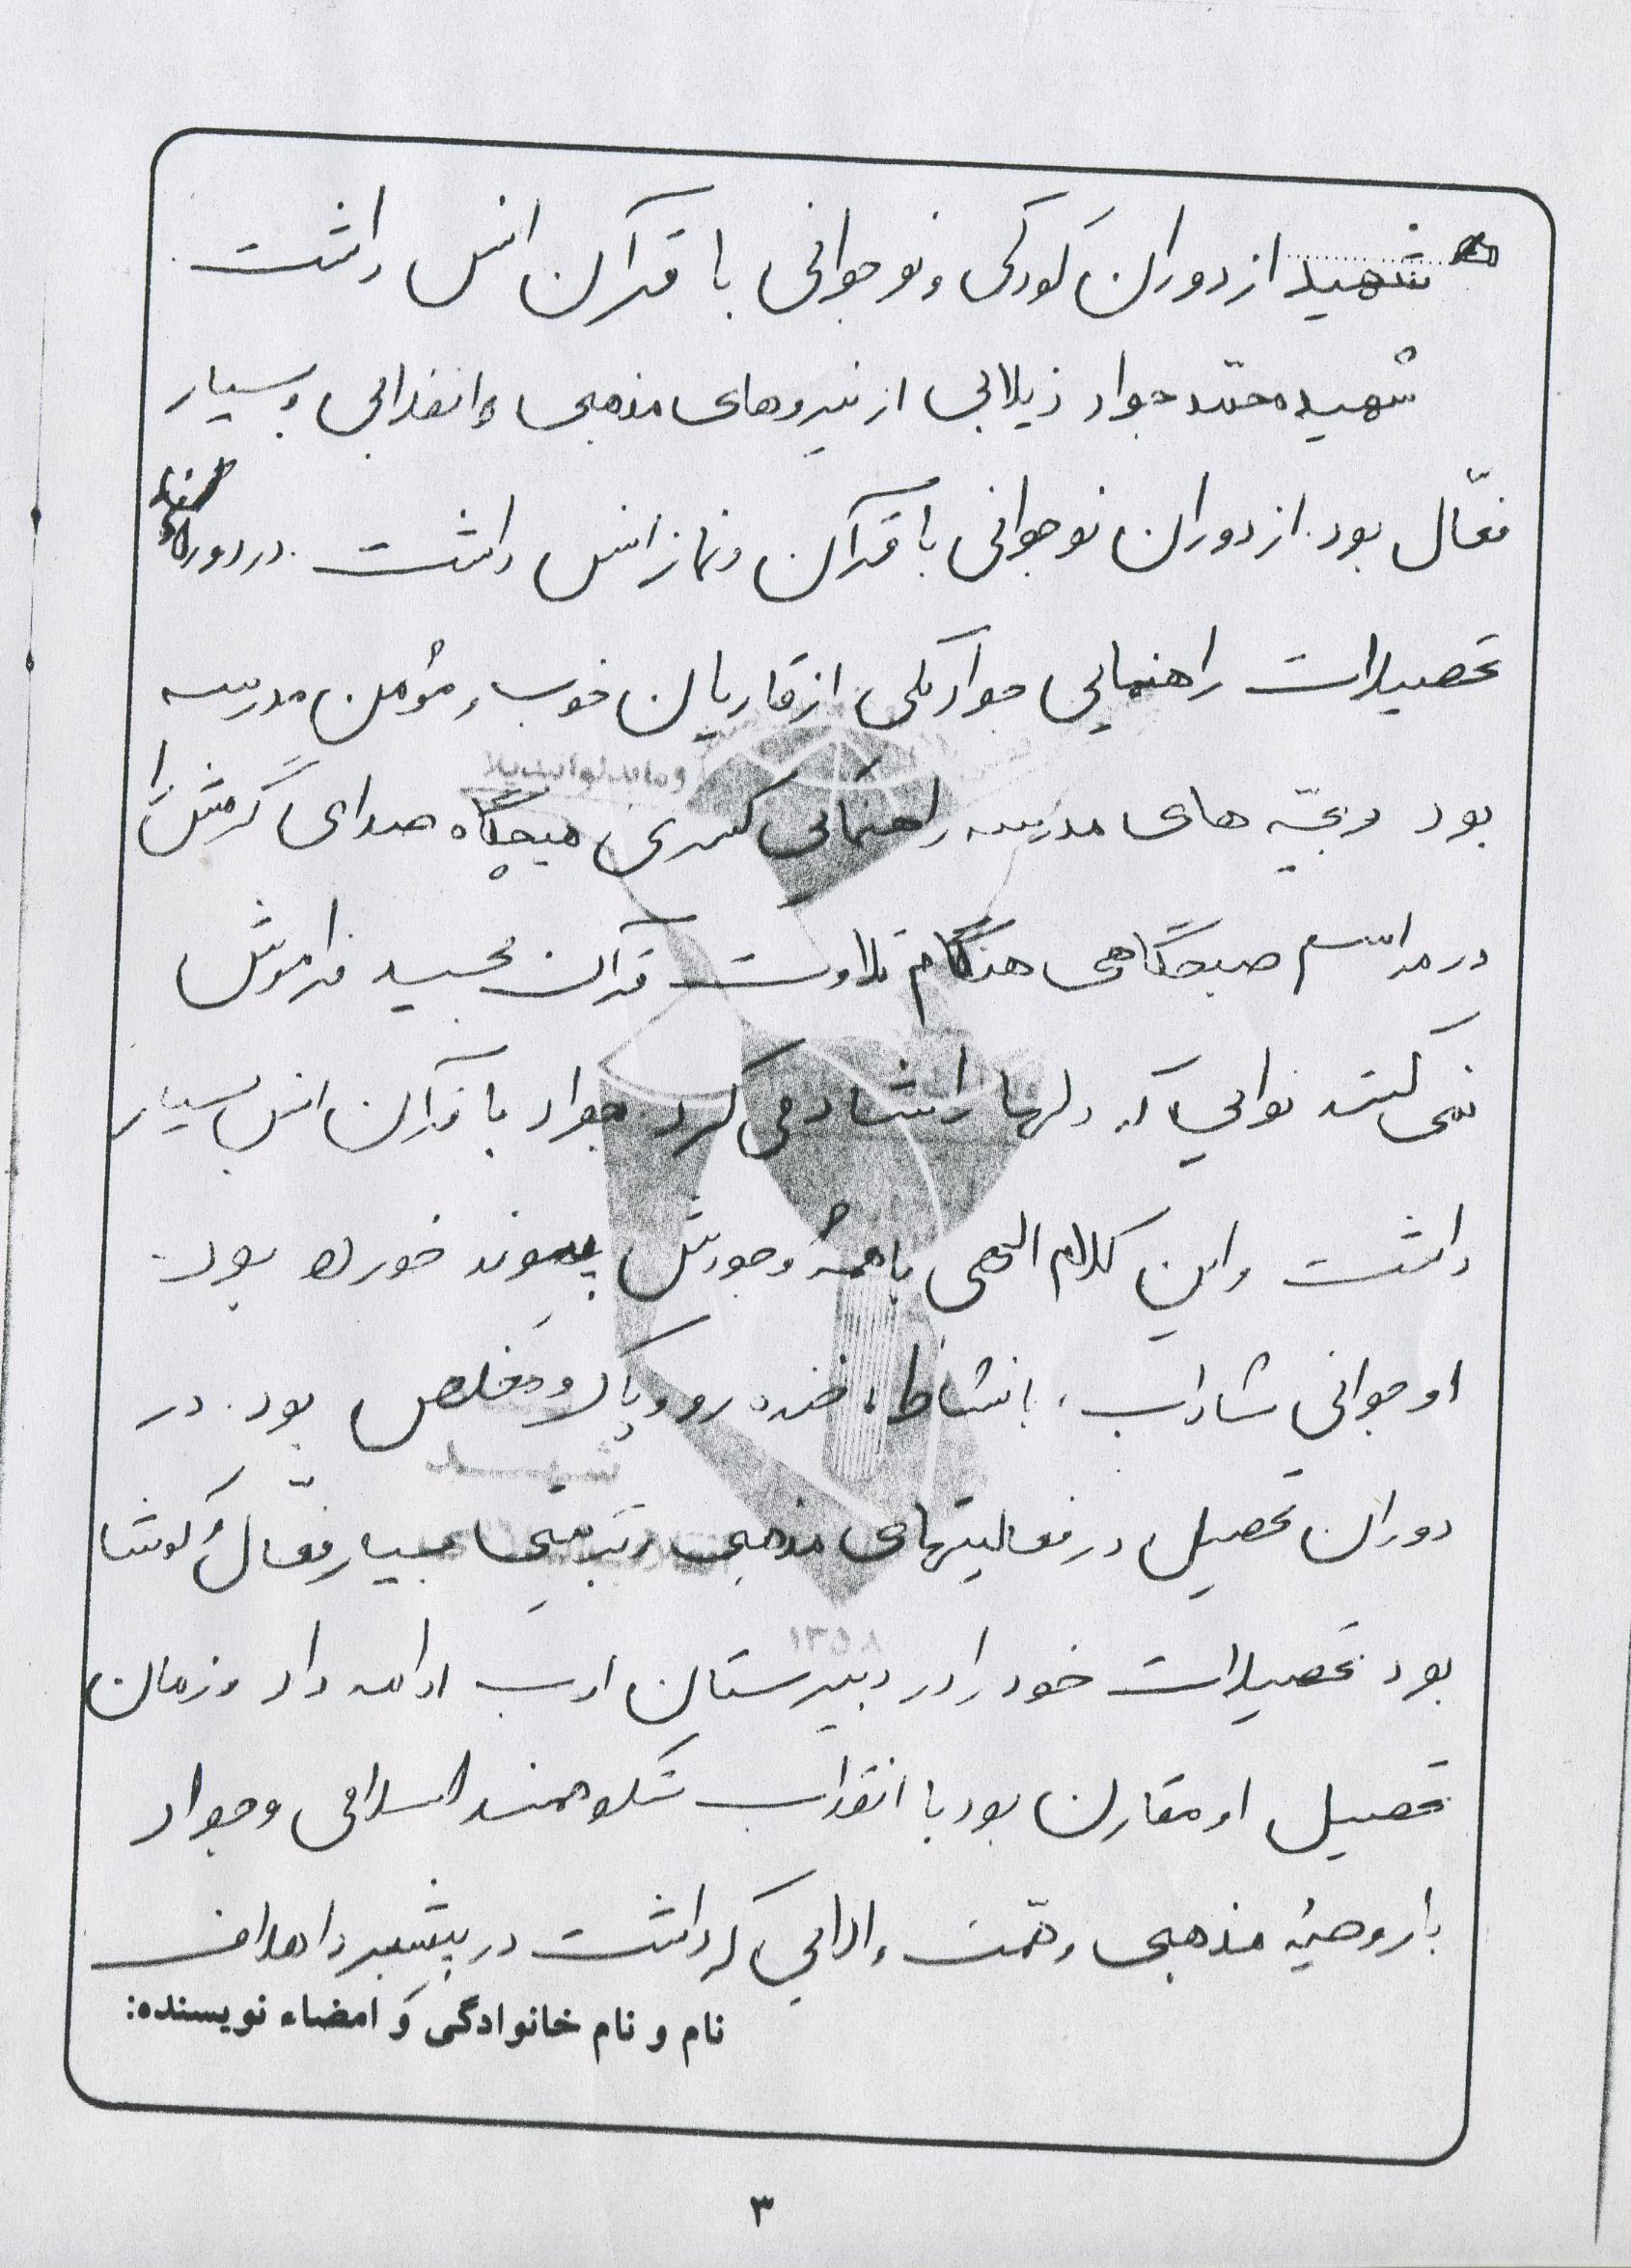 شهید از دوران کودکی و نوجوانی با قرآن انس داشت
شهید محمّد جواد ذیلابی از نیروهای مذهبی و انقلابی و بسیار
فعّال بود. از دوران نوجوانی با قرآن و نماز انس داشت. در دوره
تحصیلات راهنمایی جواد یکی از قاریان خوب و مؤمن مدرسه
بود و بچّه های مدرسه راهنمایی کسری هیچگاه صدای گرمش را
در مراسم صبحگاهی هنگام تلاوت قرآن مجید فراموش
نمی کنند نوایی که دلها را شاد می کرد. جواد با قرآن انس بسیار
داشت و این کلام الهی با همهٔ وجودش پیوند خورده بود.
او جوانی شاداب، با نشاط، خنده رو و پاک و مخلص بود. در
دوران تحصیل در فعالیتهای مذهبی و تربیتی بسیار فعّال و کوشا
بود تحصیلات خود را در دبیرستان ادب ادامه داد و زمان
تحصیل او مقارن بود با انقلاب شکوهمند اسلامی و جواد
با روحیهٔ مذهبی و همّت والایی که داشت در پیشبرد اهداف
نام و نام خانوادگی و امضاء نویسنده:
۳